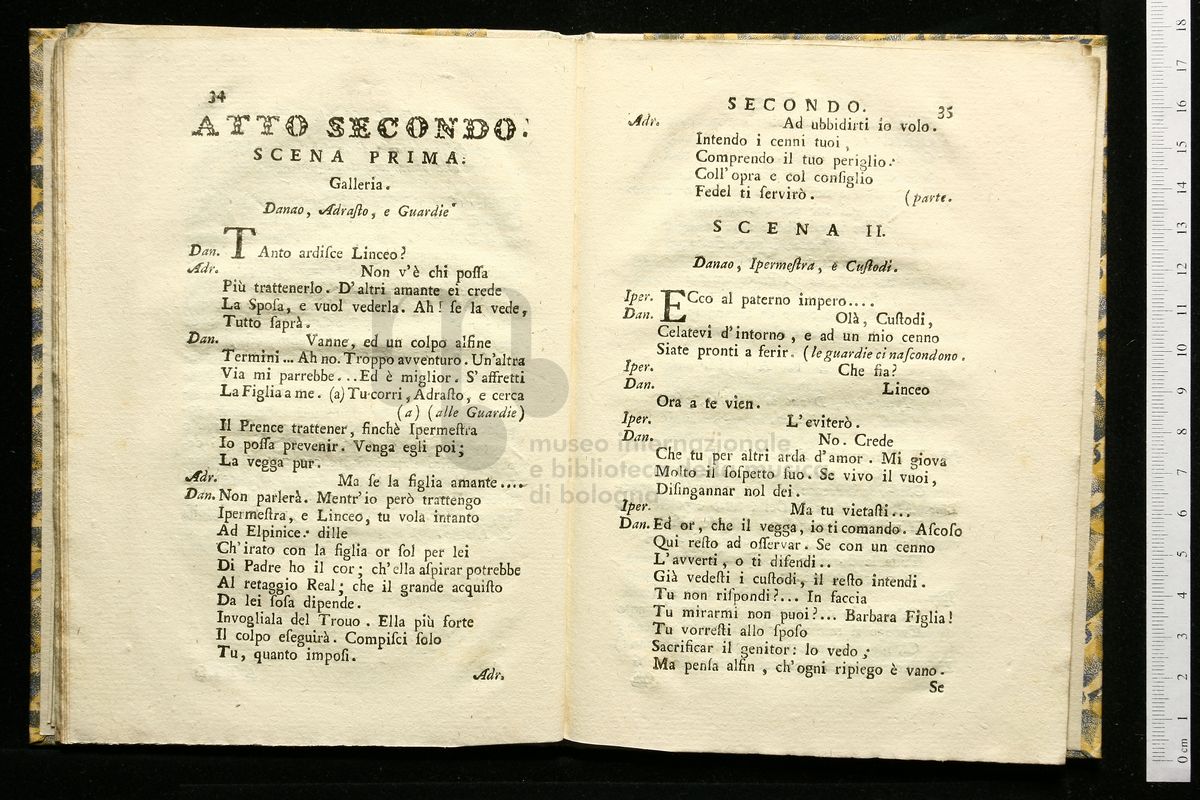 34
ATTO SECONDO.
SCENA PRIMA.
Galleria.
Danao, Adraſto, e Guardie
Dan. TAnto ardiſce Linceo?
Adr. Non v'è chi poſſa
Più trattenerlo. D'altri amante ei crede
La Spoſa, e vuol vederla. Ah! ſe la vede,
Tutto ſaprà.
Dan. Vanne, ed un colpo alfine
Termini... Ah no. Troppo avventuro. Un'altra
Via mi parrebbe... Ed è miglior. S'affretti
La Figlia a me. (a) Tu corri, Adraſto, e cerca
(a) (alle Guardie)
Il Prence trattener, finchè Ipermeſtra
Io poſſa prevenir. Venga egli poi;
La vegga pur.
Adr. Ma ſe la figlia amante....
Dan. Non parlerà. Mentr'io però trattengo
Ipermeſtra, e Linceo, tu vola intanto
Ad Elpinice: dille
Ch'irato con la figlia or ſol per lei
Di Padre ho il cor; ch'ella aſpirar potrebbe
Al retaggio Real; che il grande acquiſto
Da lei ſoſa dipende.
Invogliala del Trouo. Ella più forte
Il colpo eſeguirà. Compiſci ſolo
Tu, quanto impoſi.
Adr.
SECONDO. 35
Adr. Ad ubbidirti io volo.
Intendo i cenni tuoi,
Comprendo il tuo periglio:
Coll'opra e col conſiglio
Fedel ti ſervirò. (parte.
SCENA II.
Danao, Ipermeſtra, e Cuſtodi.
Iper. ECco al paterno impero....
Dan. Olà, Cuſtodi,
Celatevi d'intorno, e ad un mio cenno
Siate pronti a ferir. (le guardie ci naſcondono.
Iper. Che fia?
Dan. Linceo
Ora a te vien.
Iper. L'eviterò.
Dan. No. Crede
Che tu per altri arda d'amor. Mi giova
Molto il ſoſpetto ſuo. Se vivo il vuoi,
Diſingannar nol dei.
Iper. Ma tu vietaſti...
Dan. Ed or, che il vegga, io ti comando. Aſcoſo
Qui reſto ad oſſervar. Se con un cenno
L'avverti, o ti difendi..
Già vedeſti i cuſtodi, il reſto intendi.
Tu non riſpondi?... In faccia
Tu mirarmi non puoi?... Barbara Figlia!
Tu vorreſti allo ſpoſo
Sacrificar il genitor: lo vedo;
Ma penſa alfin, ch'ogni ripiego è vano.
Se
museo internazionale
e biblioteca della musica
di bologna
0 cm 1 2 3 4 5 6 7 8 9 10 11 12 13 14 15 16 17 18